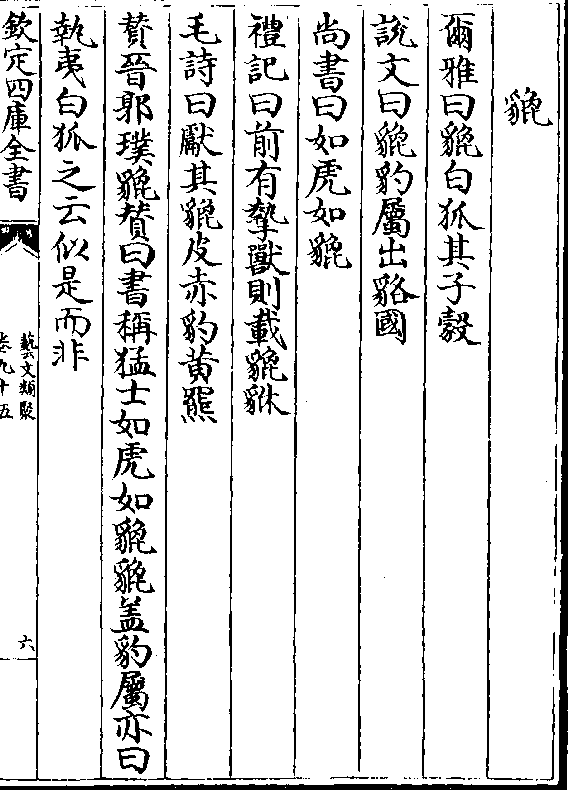 貔
爾雅曰貔白狐其子豰
說文曰貔豹屬出貉國
尚書曰如虎如貔
禮記曰前有摯獸則載貔貅
毛詩曰獻其貔皮赤豹黄羆
賛晉郭璞貔賛曰書稱猛士如虎如貔貔盖豹屬亦曰
執夷白狐之云似是而非
欽定四庫全書
藝文類聚
卷九十五
六